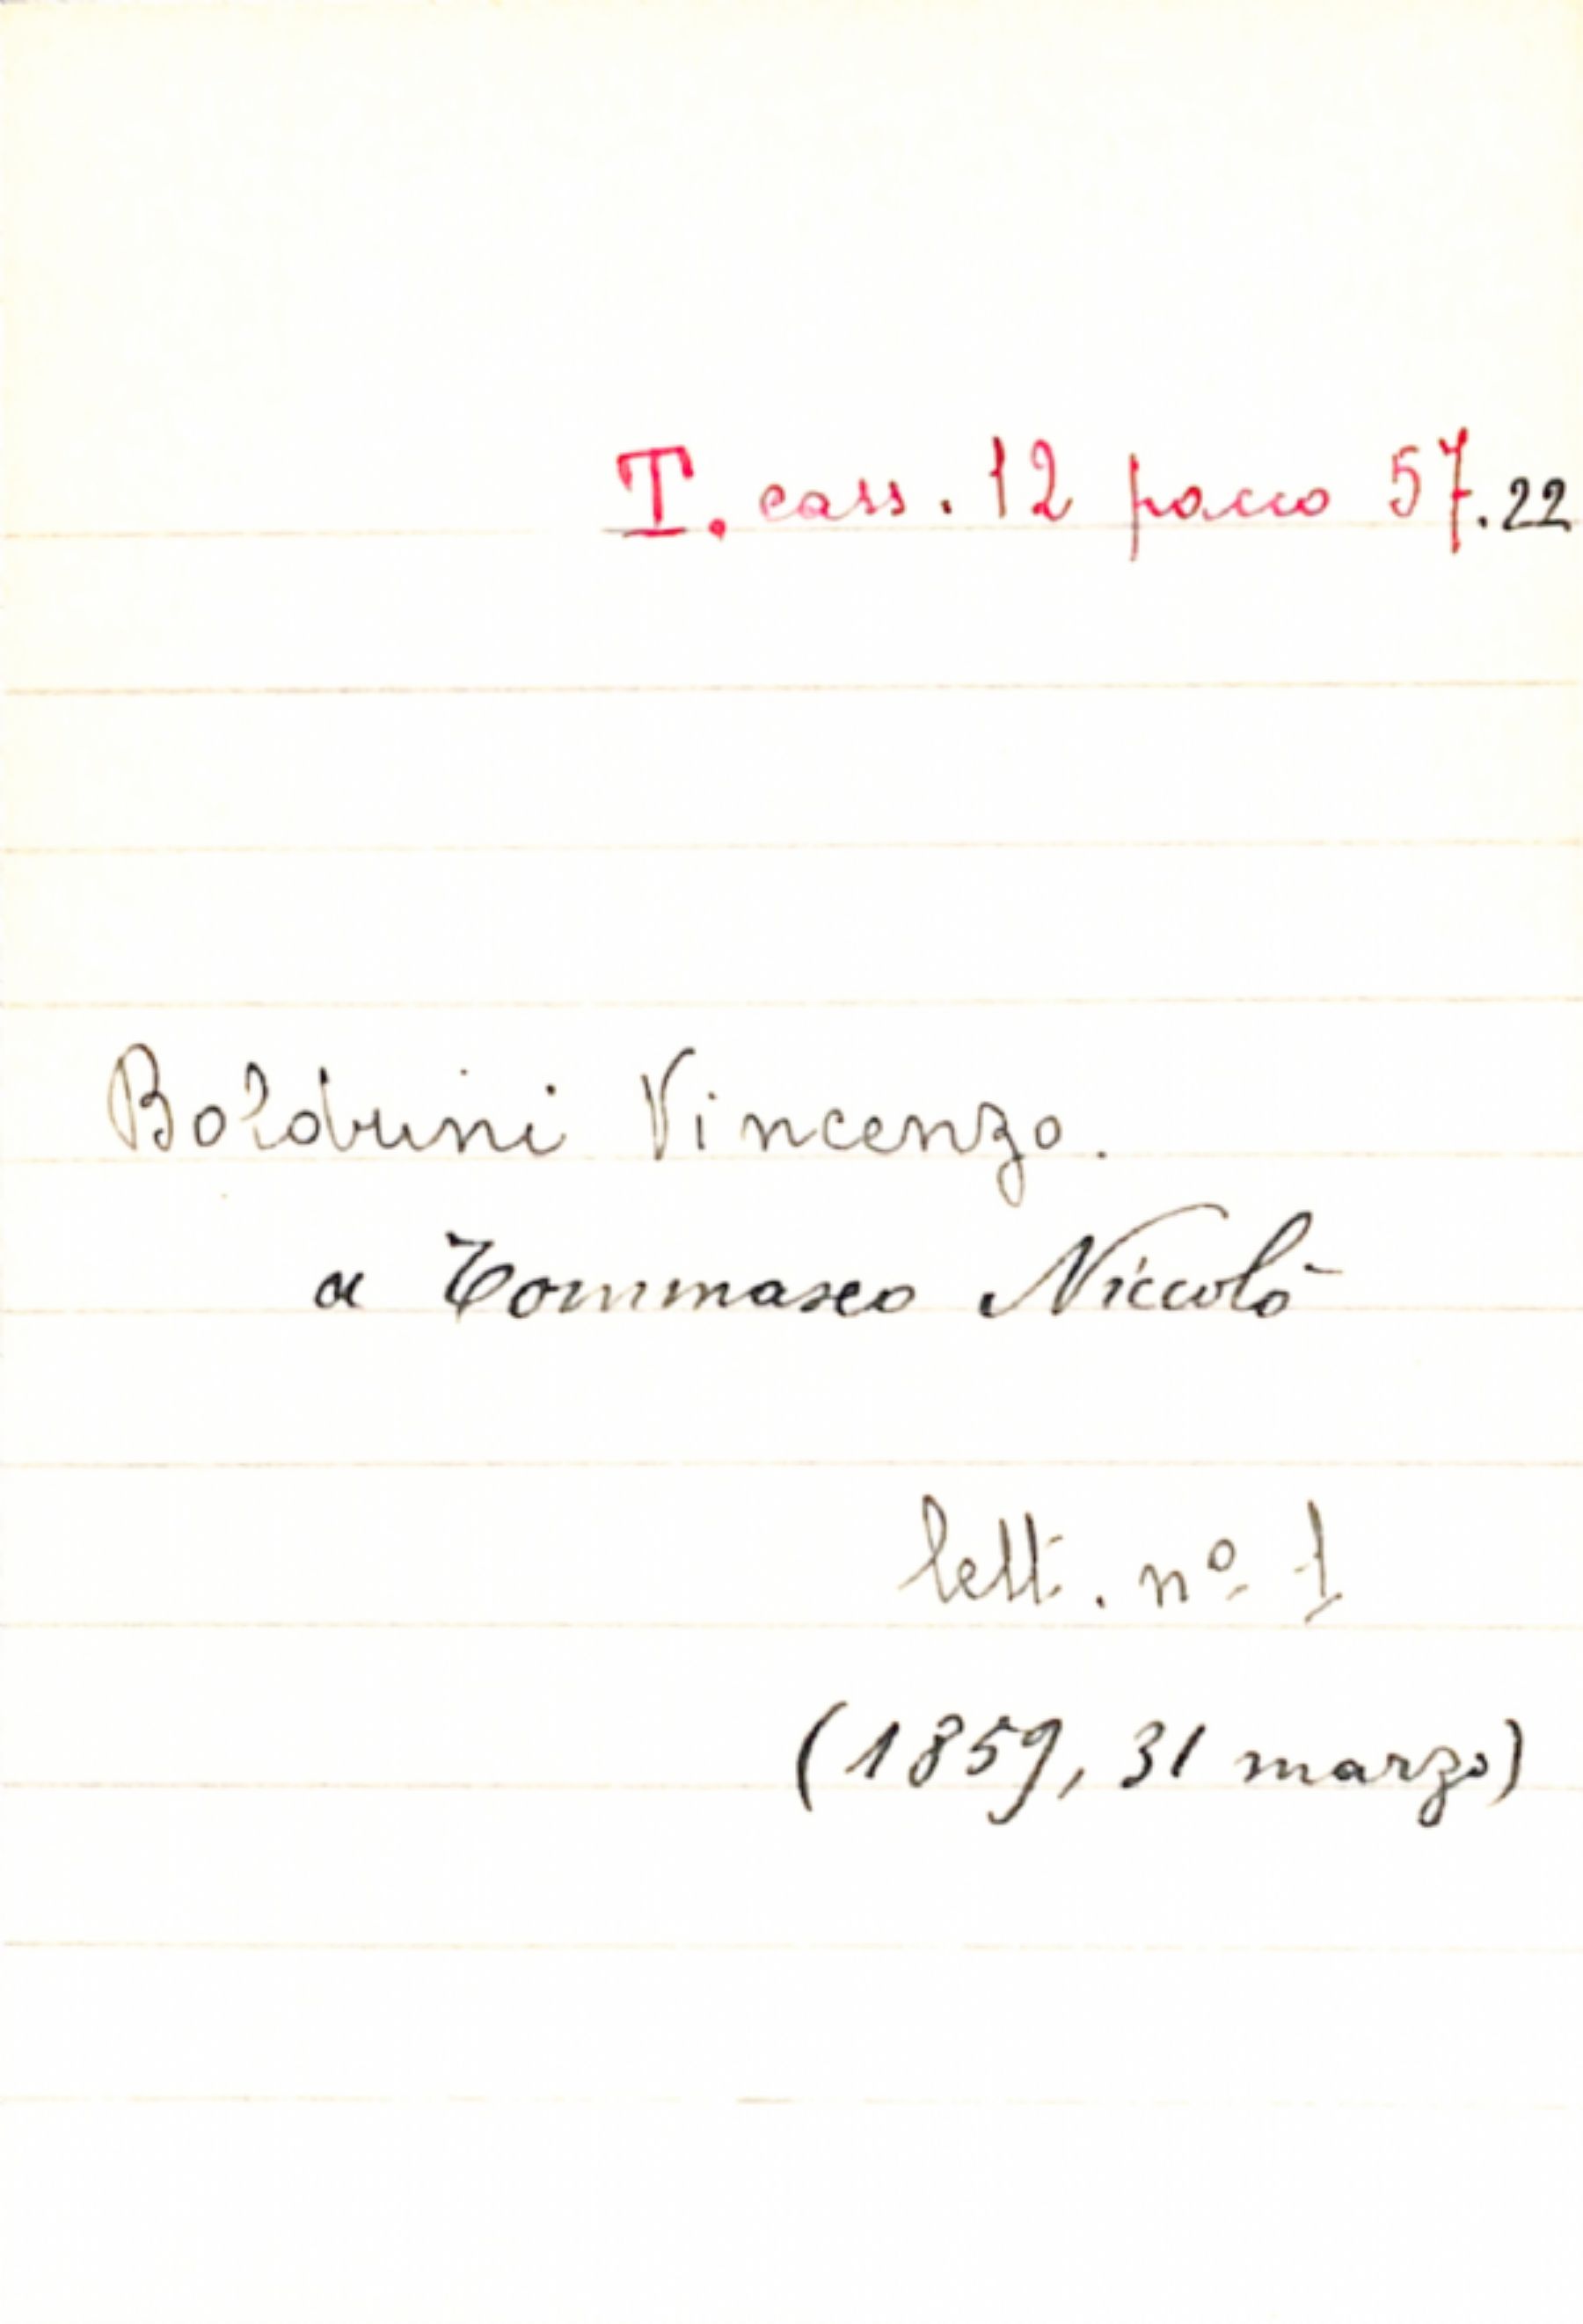 T. cass. 12 pacco 57.22
Boldrini Vincenzo.
a Tommaseo Niccolò
lett. nº 1
(1859, 31 marzo)